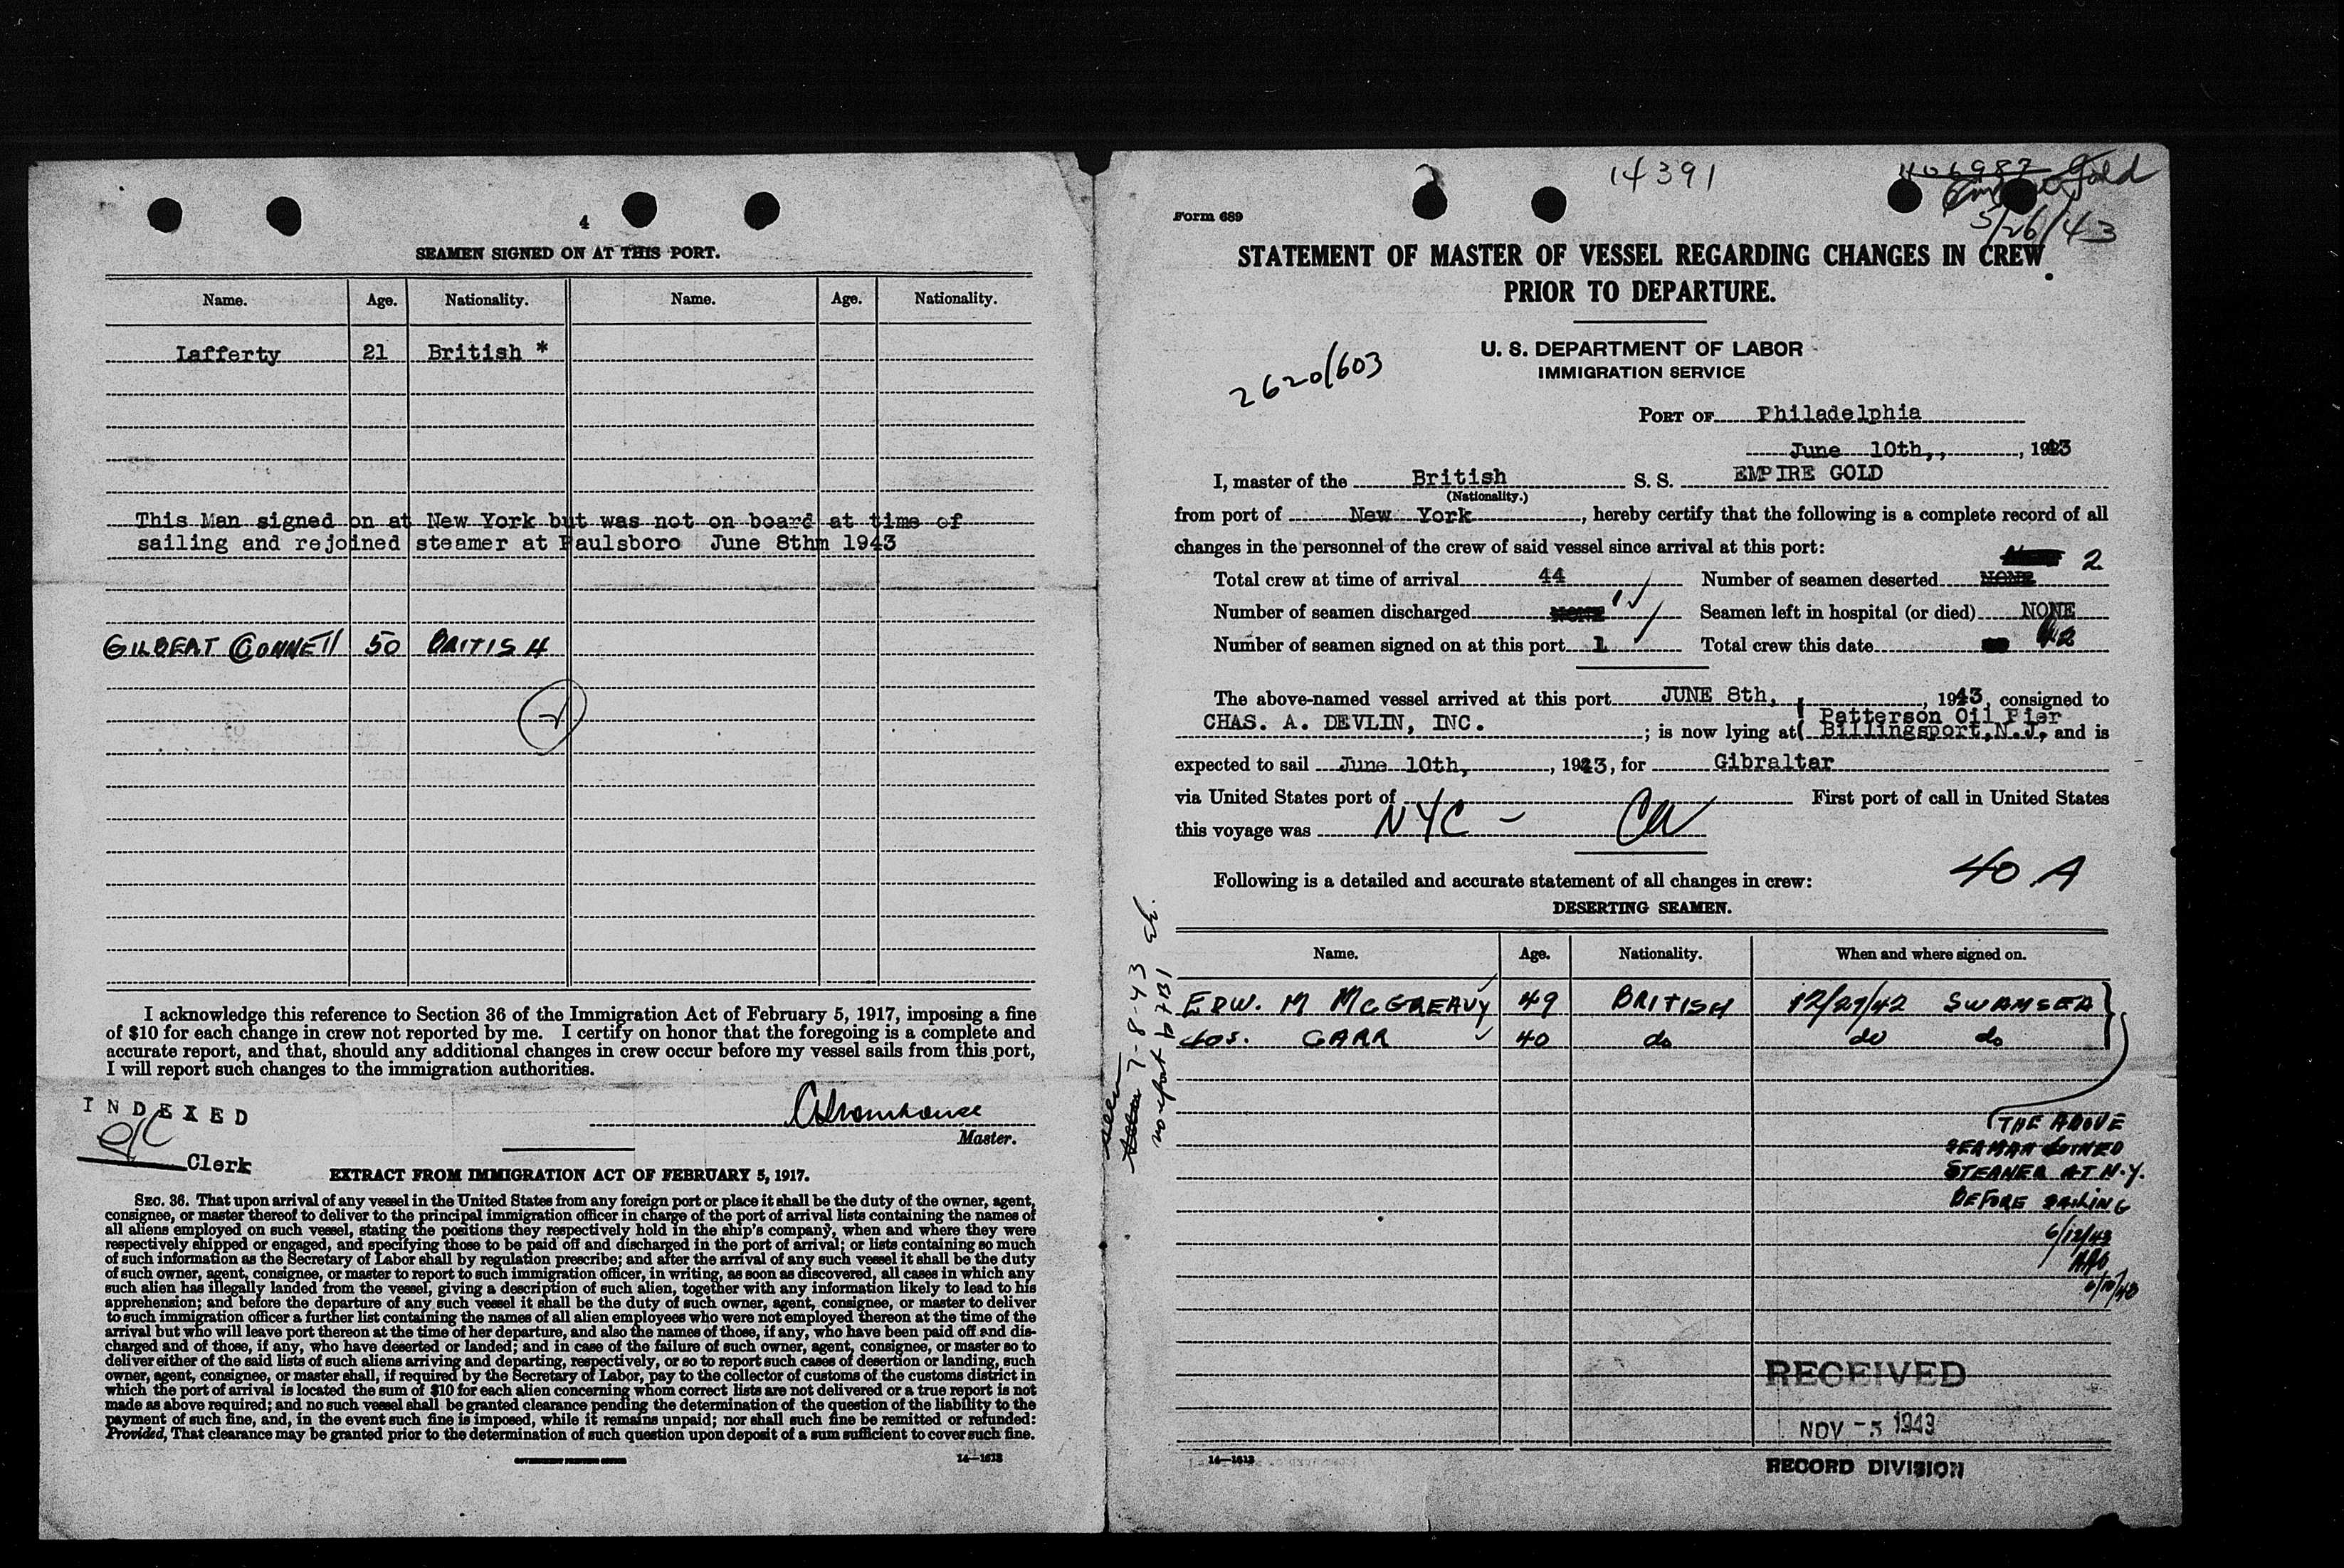 4
SEAMEN SIGNED ON AT THIS PORT.
Name. Age. Nationality. Name. Age. Nationality.
Lafferty 21 British *
This Man signed on at New York but was not on board at time of
sailing and rejoined steamer at Paulsboro June 8thm 1943
GILBERT CONNETT 50 BRITISH
I acknowledge this reference to Section 36 of the Immigration Act of February 5, 1917, imposing a fine
of $10 for each change in crew not reported by me. I certify on honor that the foregoing is a complete and
accurate report, and that, should any additional changes in crew occur before my vessel sails from this port,
I will report such changes to the immigration authorities.
INDEXED
Master.
Clerk
EXTRACT FROM IMMIGRATION ACT OF FEBRUARY 5, 1917.
SEC. 36. That upon arrival of any vessel in the United States from any foreign port or place it shall be the duty of the owner, agent,
consignee, or master thereof to deliver to the principal immigration officer in charge of the port of arrival lists containing the names of
all aliens employed on such vessel, stating the positions they respectively hold in the ship's company, when and where they were
respectively shipped or engaged, and specifying those to be paid off and discharged in the port of arrival; or lists containing so much
of such information as the Secretary of Labor shall by regulation prescribe; and after the arrival of any such vessel it shall be the duty
of such owner, agent, consignee, or master to report to such immigration officer, in writing, as soon as discovered, all cases in which any
such alien has illegally landed from the vessel, giving a description of such alien, together with any information likely to lead to his
apprehension; and before the departure of any such vessel it shall be the duty of such owner, agent, consignee, or master to deliver
to such immigration officer a further list containing the names of all alien employees who were not employed thereon at the time of the
arrival but who will leave port thereon at the time of her departure, and also the names of those, if any, who have been paid off and dis-
charged and of those, if any, who have deserted or landed; and in case of the failure of such owner, agent, consignee, or master so to
deliver either of the said lists of such aliens arriving and departing, respectively, or so to report such cases of desertion or landing, such
owner, agent, consignee, or master shall, if required by the Secretary of Labor, pay to the collector of customs of the customs district in
which the port of arrival is located the sum of $10 for each alien concerning whom correct lists are not delivered or a true report is not
made as above required; and no such vessel shall be granted clearance pending the determination of the question of the liability to the
payment of such fine, and, in the event such fine is imposed, while it remains unpaid; nor shall such fine be remitted or refunded:
Provided, That clearance may be granted prior to the determination of such question upon deposit of a sum sufficient to cover such fine.
GOVERNMENT PRINTING OFFICE 14—1613
14391
Gold
5/26/43
Form 689
STATEMENT OF MASTER OF VESSEL REGARDING CHANGES IN CREW
PRIOR TO DEPARTURE.
U. S. DEPARTMENT OF LABOR
IMMIGRATION SERVICE
2620/603
PORT OF Philadelphia
June 10th,, 1943
I, master of the British S. S. EMPIRE GOLD
(Nationality.)
from port of New York, hereby certify that the following is a complete record of all
changes in the personnel of the crew of said vessel since arrival at this port:
Total crew at time of arrival 44 Number of seamen deserted NONE 2
Number of seamen discharged NONE 1 Seamen left in hospital (or died) NONE
Number of seamen signed on at this port 1 Total crew this date 42
The above-named vessel arrived at this port JUNE 8th, 1943 consigned to
CHAS. A. DEVLIN, INC.; is now lying at ( Patterson Oil Pier
Billingsport, N.J. and is
expected to sail June 10th, 1943, for Gibraltar
via United States port of First port of call in United States
this voyage was NYC -
40 A
Following is a detailed and accurate statement of all changes in crew:
DESERTING SEAMEN.
Name. Age. Nationality. When and where signed on.
EDW. M MCGREAVY 49 BRITISH 12/27/42 SWANSEA
Jos. CARR 40 do do do
THE ABOVE
SEAMAN JOINED
STEAMER AT N.Y.
BEFORE SAILING
6/12/43
seen 7-8-43
no report
RECEIVED
NOV -5 1943
RECORD DIVISION
14—1613